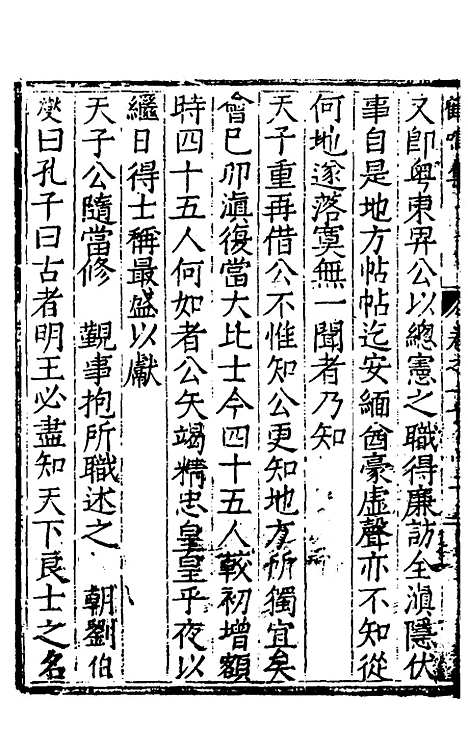 又即粤東畀公以總憲之職得廉訪全滇隱伏
事自是地方帖帖迄安緬酋豪虛聲亦不知從
何地遂落寞無一聞者乃知
天子重再借公不惟知公更知地方所獨宜矣
會巳卯滇復當大比士今四十五人較初增額
時四十五人何如者公矢竭精忠皇皇乎夜以
繼日得士稱最盛以獻
天子公隨當修 覲事抱所職述之 朝劉伯
燮曰孔子曰古者明王必盡知天下良士之名